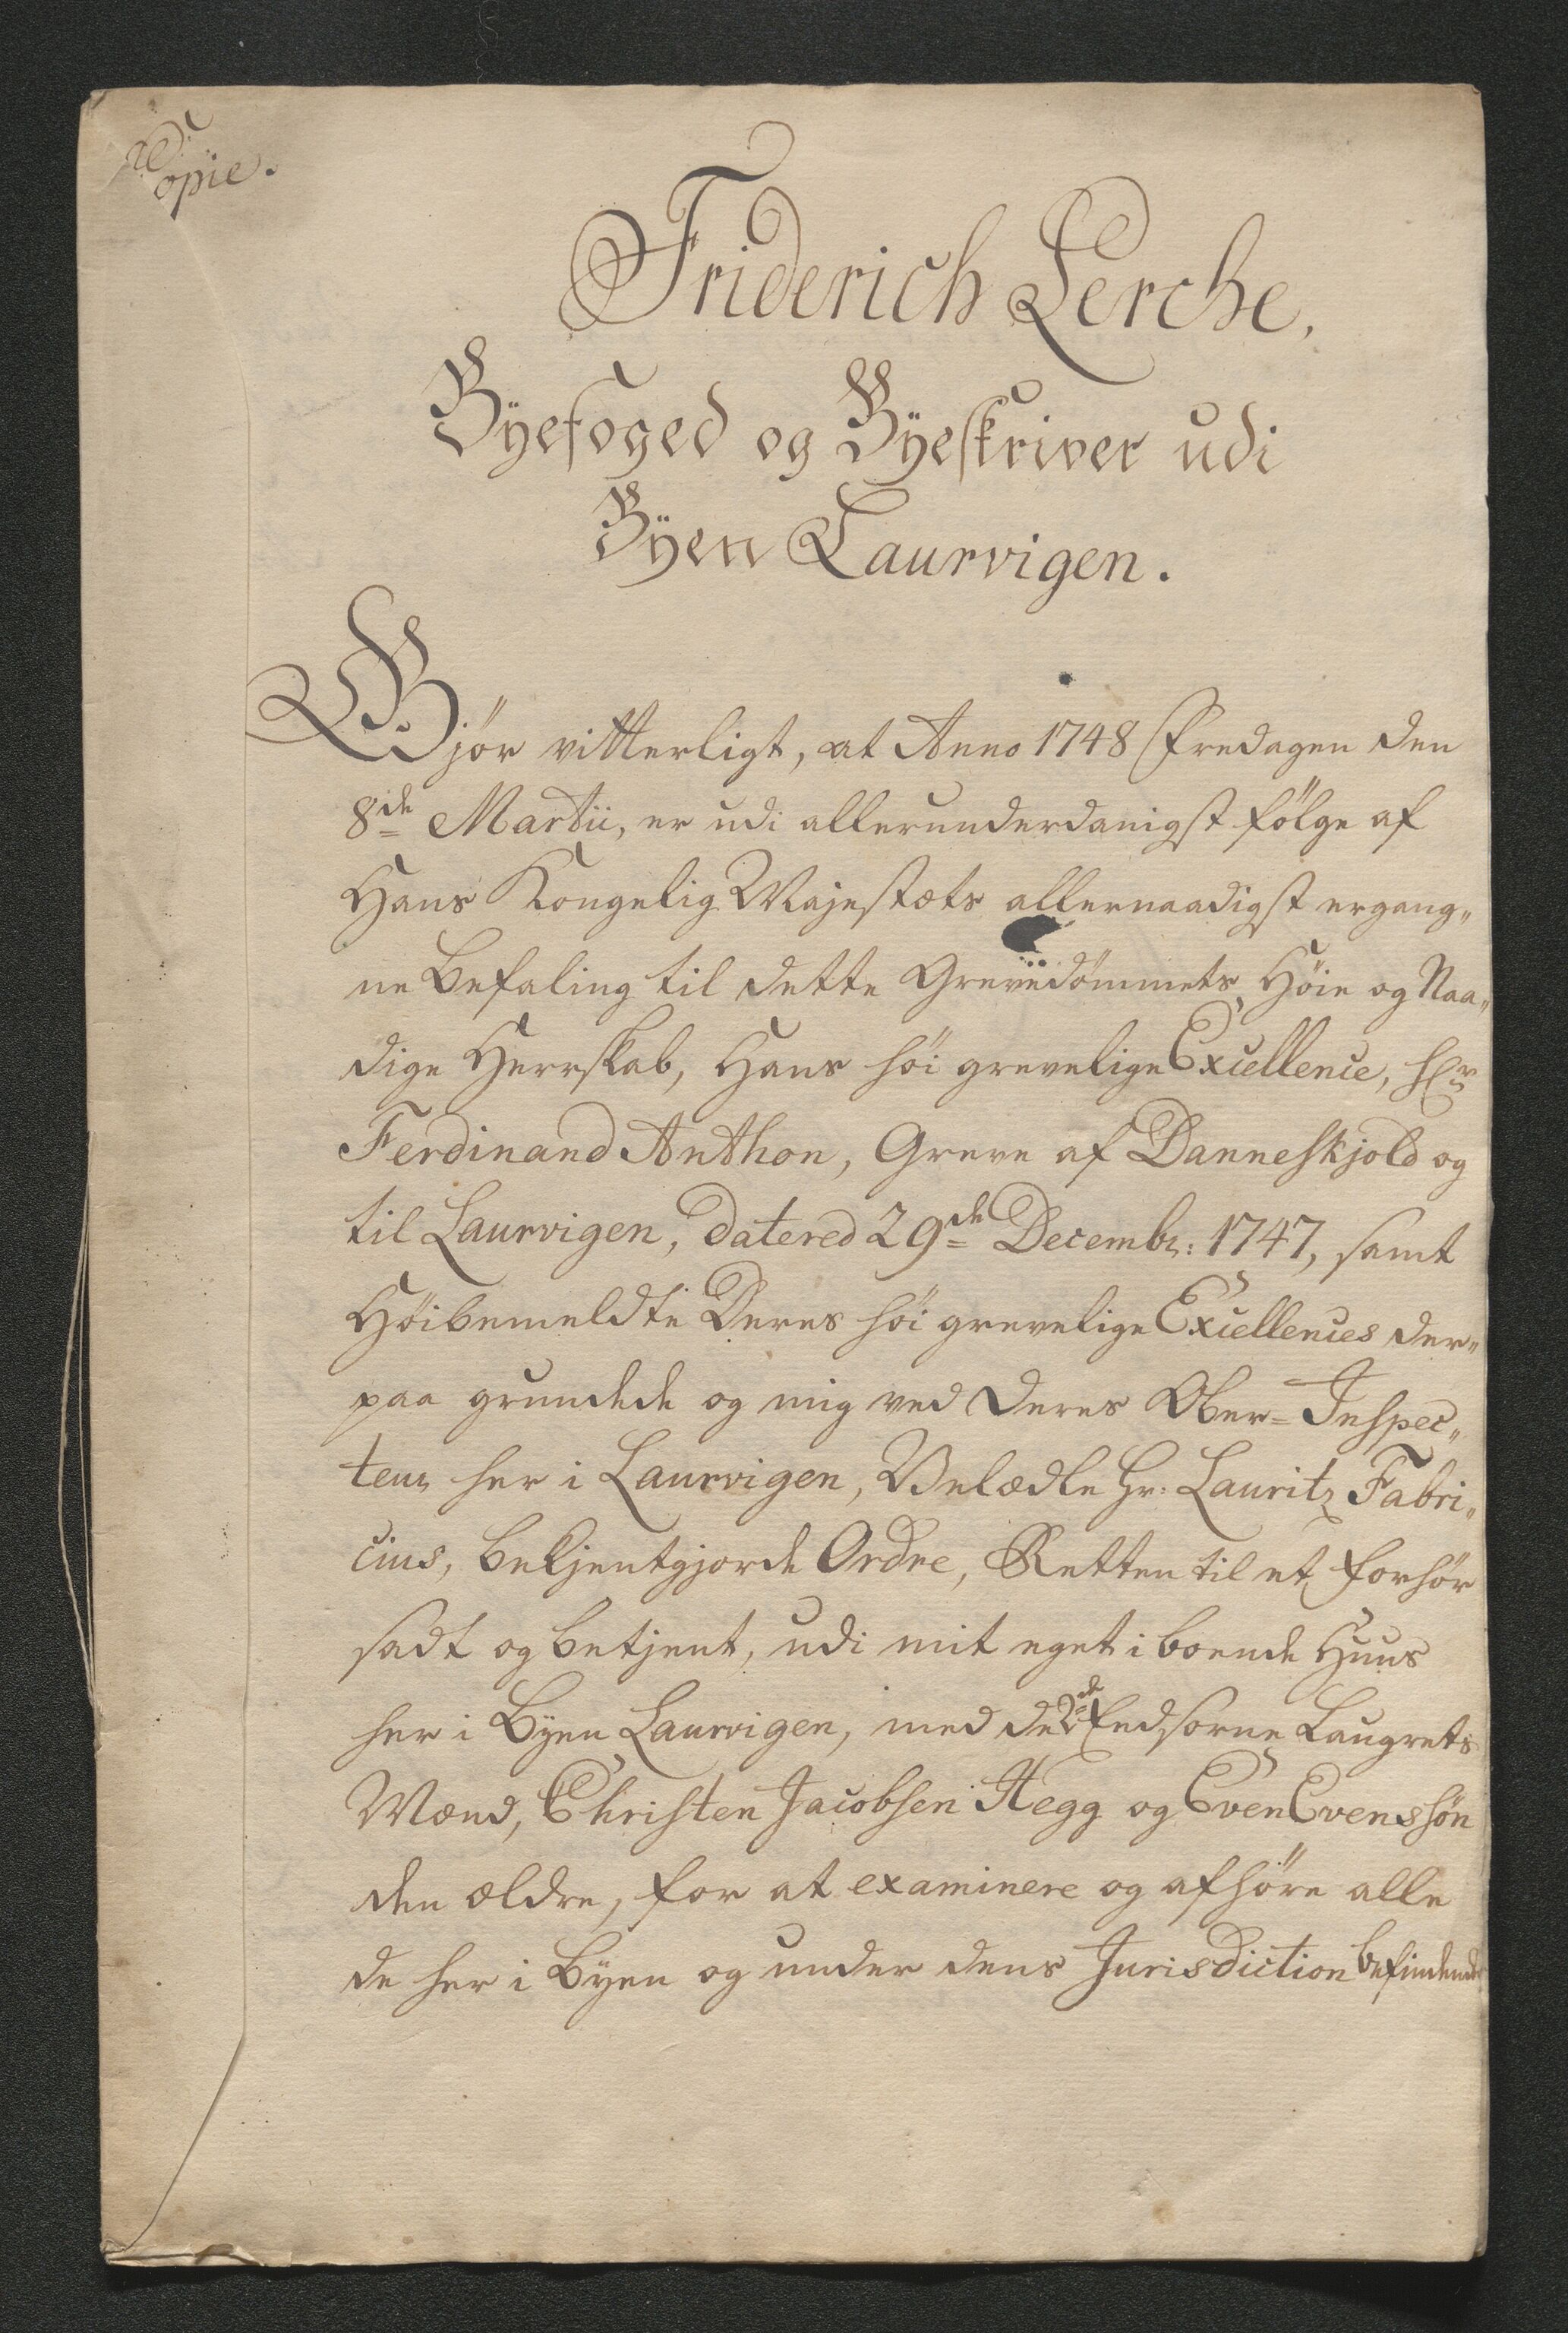 Copie.
Friderich Lerche,
Byefoged og Byeskriver udi
Byen Laurvigen.
Gjör vitterligt, at Anno 1748 Fredagen den
8de Martii, er udi allerunderdanigst fölge af
Hans Kongelig Majestæts allernaadigst ergang„
ne Befaling til dette Grevedömmets Höie og Naa„
dige Herskab, Hans höi grevelige Excellence, Hr
Ferdinand Anthon, Greve af Danneskjold og
til Laurvigen, datered 29de Decembr: 1747, samt
Höibemeldte Deres höi grevelige Excellences der„
paa grundede og mig ved Deres Ober=Inspec„
teur her i Laurvigen, Velædle Hr: Lauritz Fabri„
cius, bekjentgjorde Ordre, Retten til et forhör
sadt og betjent, udi mit eget iboende Huus
her i Byen Laurvigen, med de 2de Eedsorne Laugrets
Mænd, Christen Jacobsen Hegg og Even Evenssön
den ældre, for at examinere og afhöre alle
de her i Byen og under dens Jurisdiction befindende